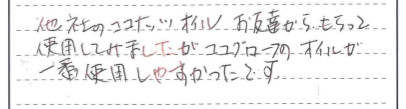 他社のココナッツオイル お友達からもらって
使用してみましたがココグローブのオイルが
一番使用しやすかったです。